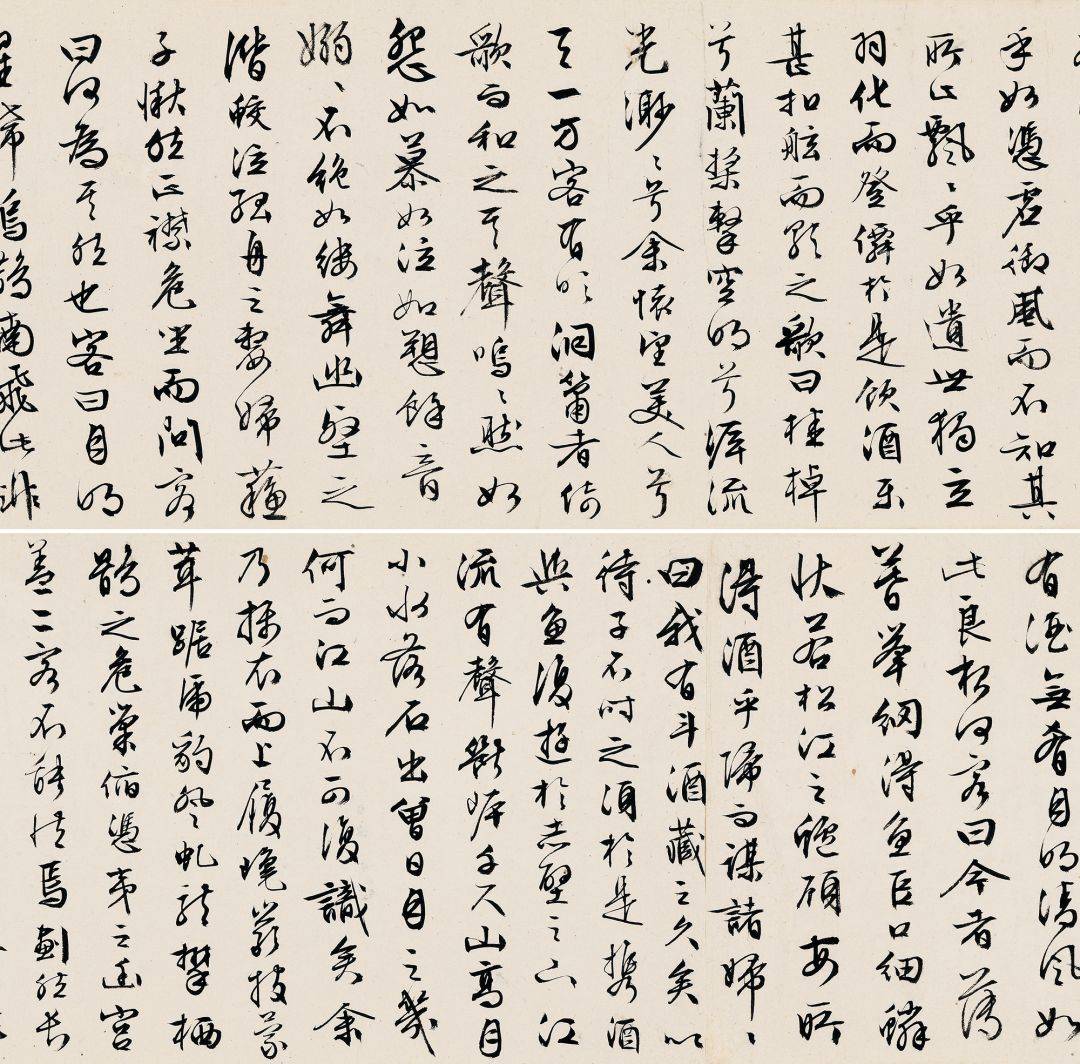 乎如憑虛御風而不知其
所止飄〻乎如遺世獨立
羽化而登僊於是飲酒樂
甚扣舷而歌之歌曰桂棹
兮蘭槳擊空明兮泝流
光渺〻兮余懷望美人兮
天一方客有吹洞簫者倚
歌而和之其聲嗚〻然如
怨如慕如泣如愬餘音
嫋〻不絕如縷舞幽壑之
潛蛟泣孤舟之嫠婦蘇
子愀然正襟危坐而問客
曰何為其然也客曰月明
星稀烏鵲南飛此非
有酒無肴月明清風如
此良夜何客曰今者薄
暮舉網得魚巨口細鱗
狀若松江之鱸顧安所
得酒乎歸而謀諸婦〻
曰我有斗酒藏之久矣以
待子不時之須於是攜酒
與魚復遊於赤壁之下江
流有聲斷岸千尺山高月
小水落石出曾日月之幾
何而江山不可復識矣余
乃攝衣而上履巉巖披蒙
茸踞虎豹登虬龍攀栖
鶻之危巢俯馮夷之幽宮
蓋二客不能從焉劃然長